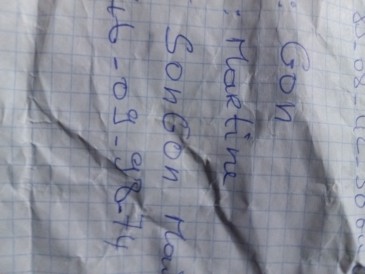 : Gon
: Martine
Songon Mai
46-09-98-74